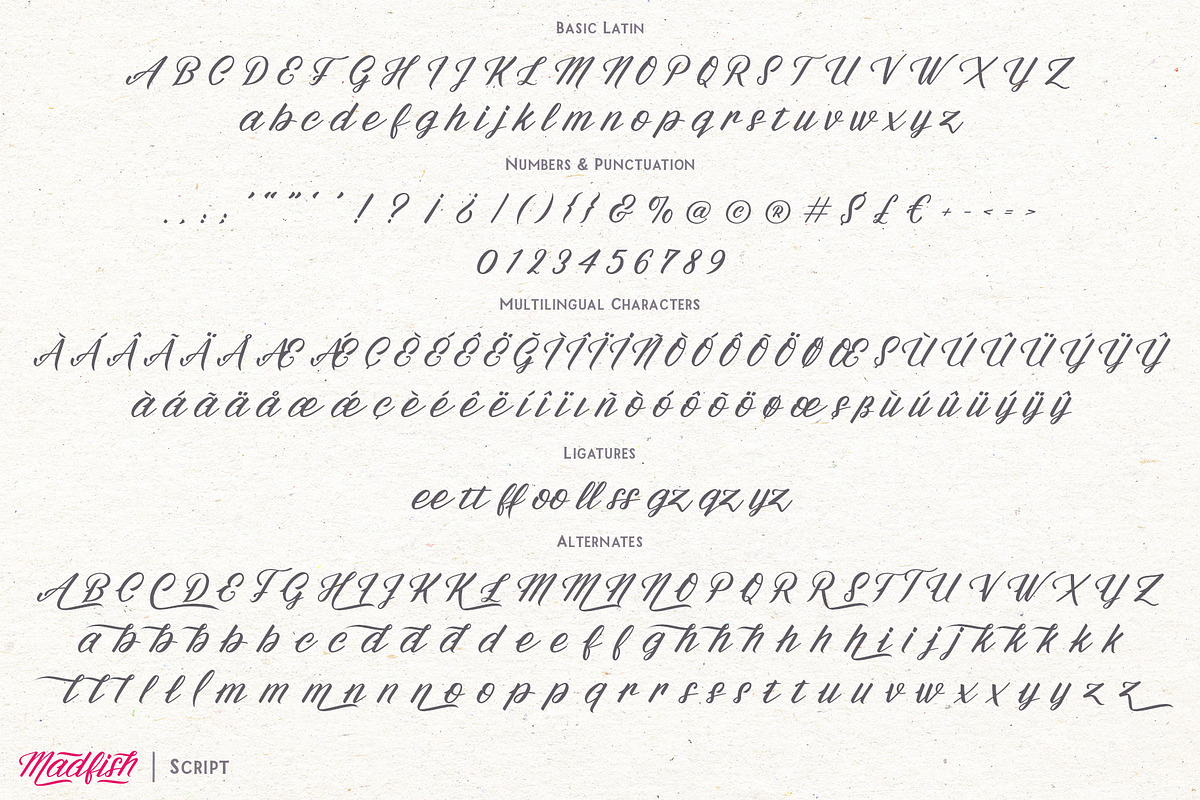 Basic Latin
A B C D E F G H I J K L M N O P Q R S T U V W X Y Z
a b c d e f g h i j k l m n o p q r s t u v w x y z
Numbers & Punctuation
. , : ; ' “ ” ‘ ’ ! ? ¡ ¿ / ( ) { } & % @ © ® # $ £ € + - < = >
0 1 2 3 4 5 6 7 8 9
Multilingual Characters
À Á Â Ã Ä Å Æ Ǽ Ç È É Ê Ë Ğ Ì Í Î Ï İ Ñ Ò Ó Ô Õ Ö Ø Œ Ş Ù Ú Û Ü Ý Ÿ Ŷ
à á ã ä å æ ǽ ç è é ê ë í î ï ı ñ ò ó ô õ ö ø œ ş ß ù ú û ü ý ÿ ŷ
Ligatures
ee tt ff oo ll ss gz qz yz
Alternates
A B C C D E F G H I J K K L M M N N O P Q R R S T T U V W X Y Z
a b b b b b c c d d d d e e f f g h h h h h h i i j j k k k k k
t t t l l l m m m n n n o o p p q r r s s s t t u u v w x x y y z z
Madfish | Script